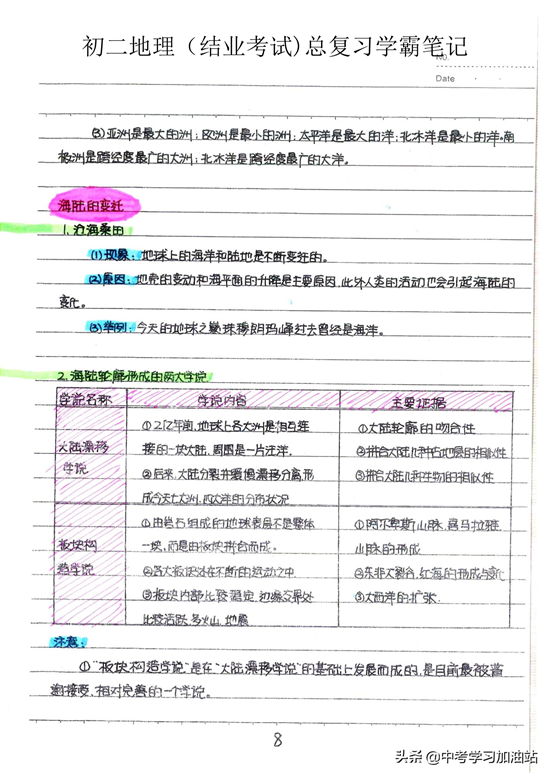 初二地理（结业考试)总复习学霸笔记
No.
Date
(3)亚洲是最大的洲；欧洲是最小的洲；太平洋是最大的洋；北冰洋是最小的洋。南
极洲是跨经度最广的大洲；北冰洋是跨经度最广的大洋。
海陆的变迁
1. 沧海桑田
(1)现象：地球上的海洋和陆地是不断变化的。
(2)原因：地壳的变动和海平面的升降是主要原因，此外人类的活动也会引起海陆的
变化。
(3)举例：今天的地球之巅珠穆朗玛峰过去曾经是海洋。
2. 海陆轮廓形成的两大学说
学说名称 学说内容 主要证据
大陆漂移学说
①2亿年前，地球上各大洲是相互连
接的一块大陆，周围是一片汪洋。
②后来，大陆分裂并缓慢漂移分离，形
成今天七大洲，四大洋的分布状况
①大陆轮廓的吻合性
②拼合大陆几种古地层的相似性
③拼合大陆几种生物的相似性
板块构
造学说
①由岩石组成的地球表层不是整体
一块，而是由板块拼合而成。
②各大板块处在不断的运动之中
③板块内部比较稳定，边缘交界处
比较活跃，多火山、地震
①阿尔卑斯山脉，喜马拉雅
山脉的形成
②东非大裂谷，红海的形成与变化
③大西洋的扩张
注意：
①“板块构造学说”是在“大陆漂移学说”的基础上发展而成的，是目前最被普
遍接受，相对完善的一个学说。
8
头条@中考学习加油站